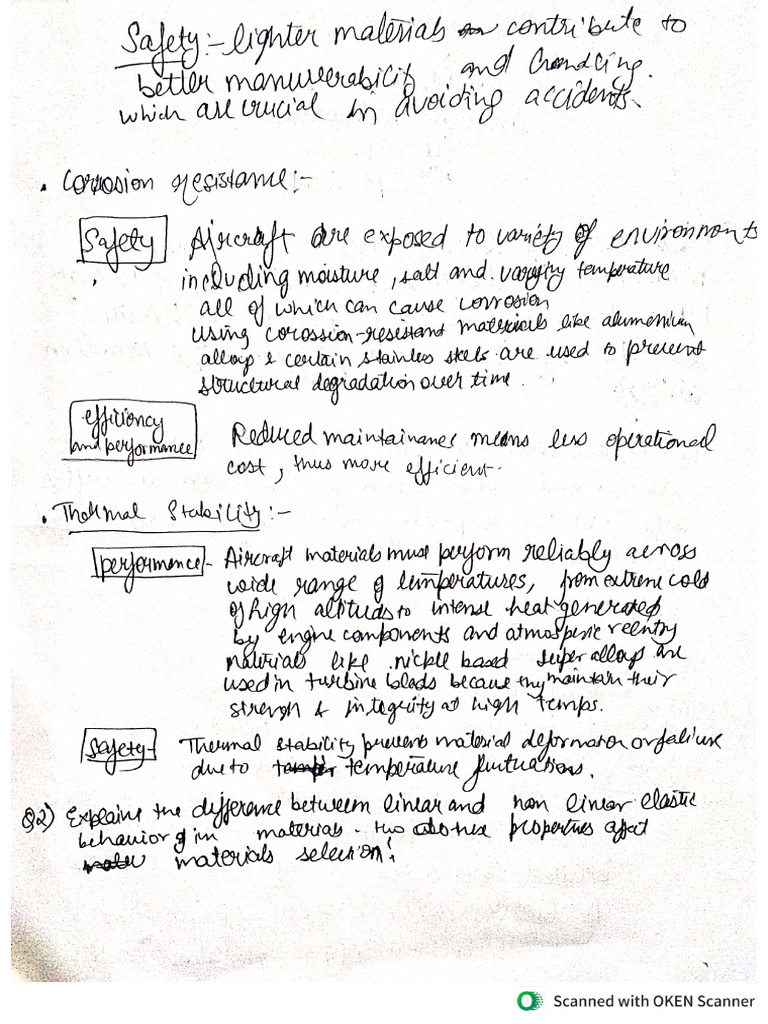 Safety:- lighter materials contribute to
better manuverability and handling.
which are crucial in avoiding accidents.
• Corrosion resistance:-
Safety Aircraft are exposed to variety of environments
including moisture, salt and varying temperature
all of which can cause corrosion
using corossion-resistant materials like alumenium
alloys & certain stainless steels are used to prevent
structural degradation over time.
efficiency
and performance Reduced maintainance means less operational
cost, thus more efficient.
• Thermal Stability:-
performence - Aircraft materials must perform reliably across
wide range of temperatures, from extreme cold
of high altituds to intense heat generated
by engine components and atmosperic reentry
materials like nickle based super alloys are
used in turbine blads because they maintain their
strengh & integrity at high temps.
Safety- Thermal stability prevent material deformation or faliure
due to temperature fluctuations.
Q2) Explains the difference between linear and non linear elastic
behavior of in materials. properties affect
materials selection?
Scanned with OKEN Scanner